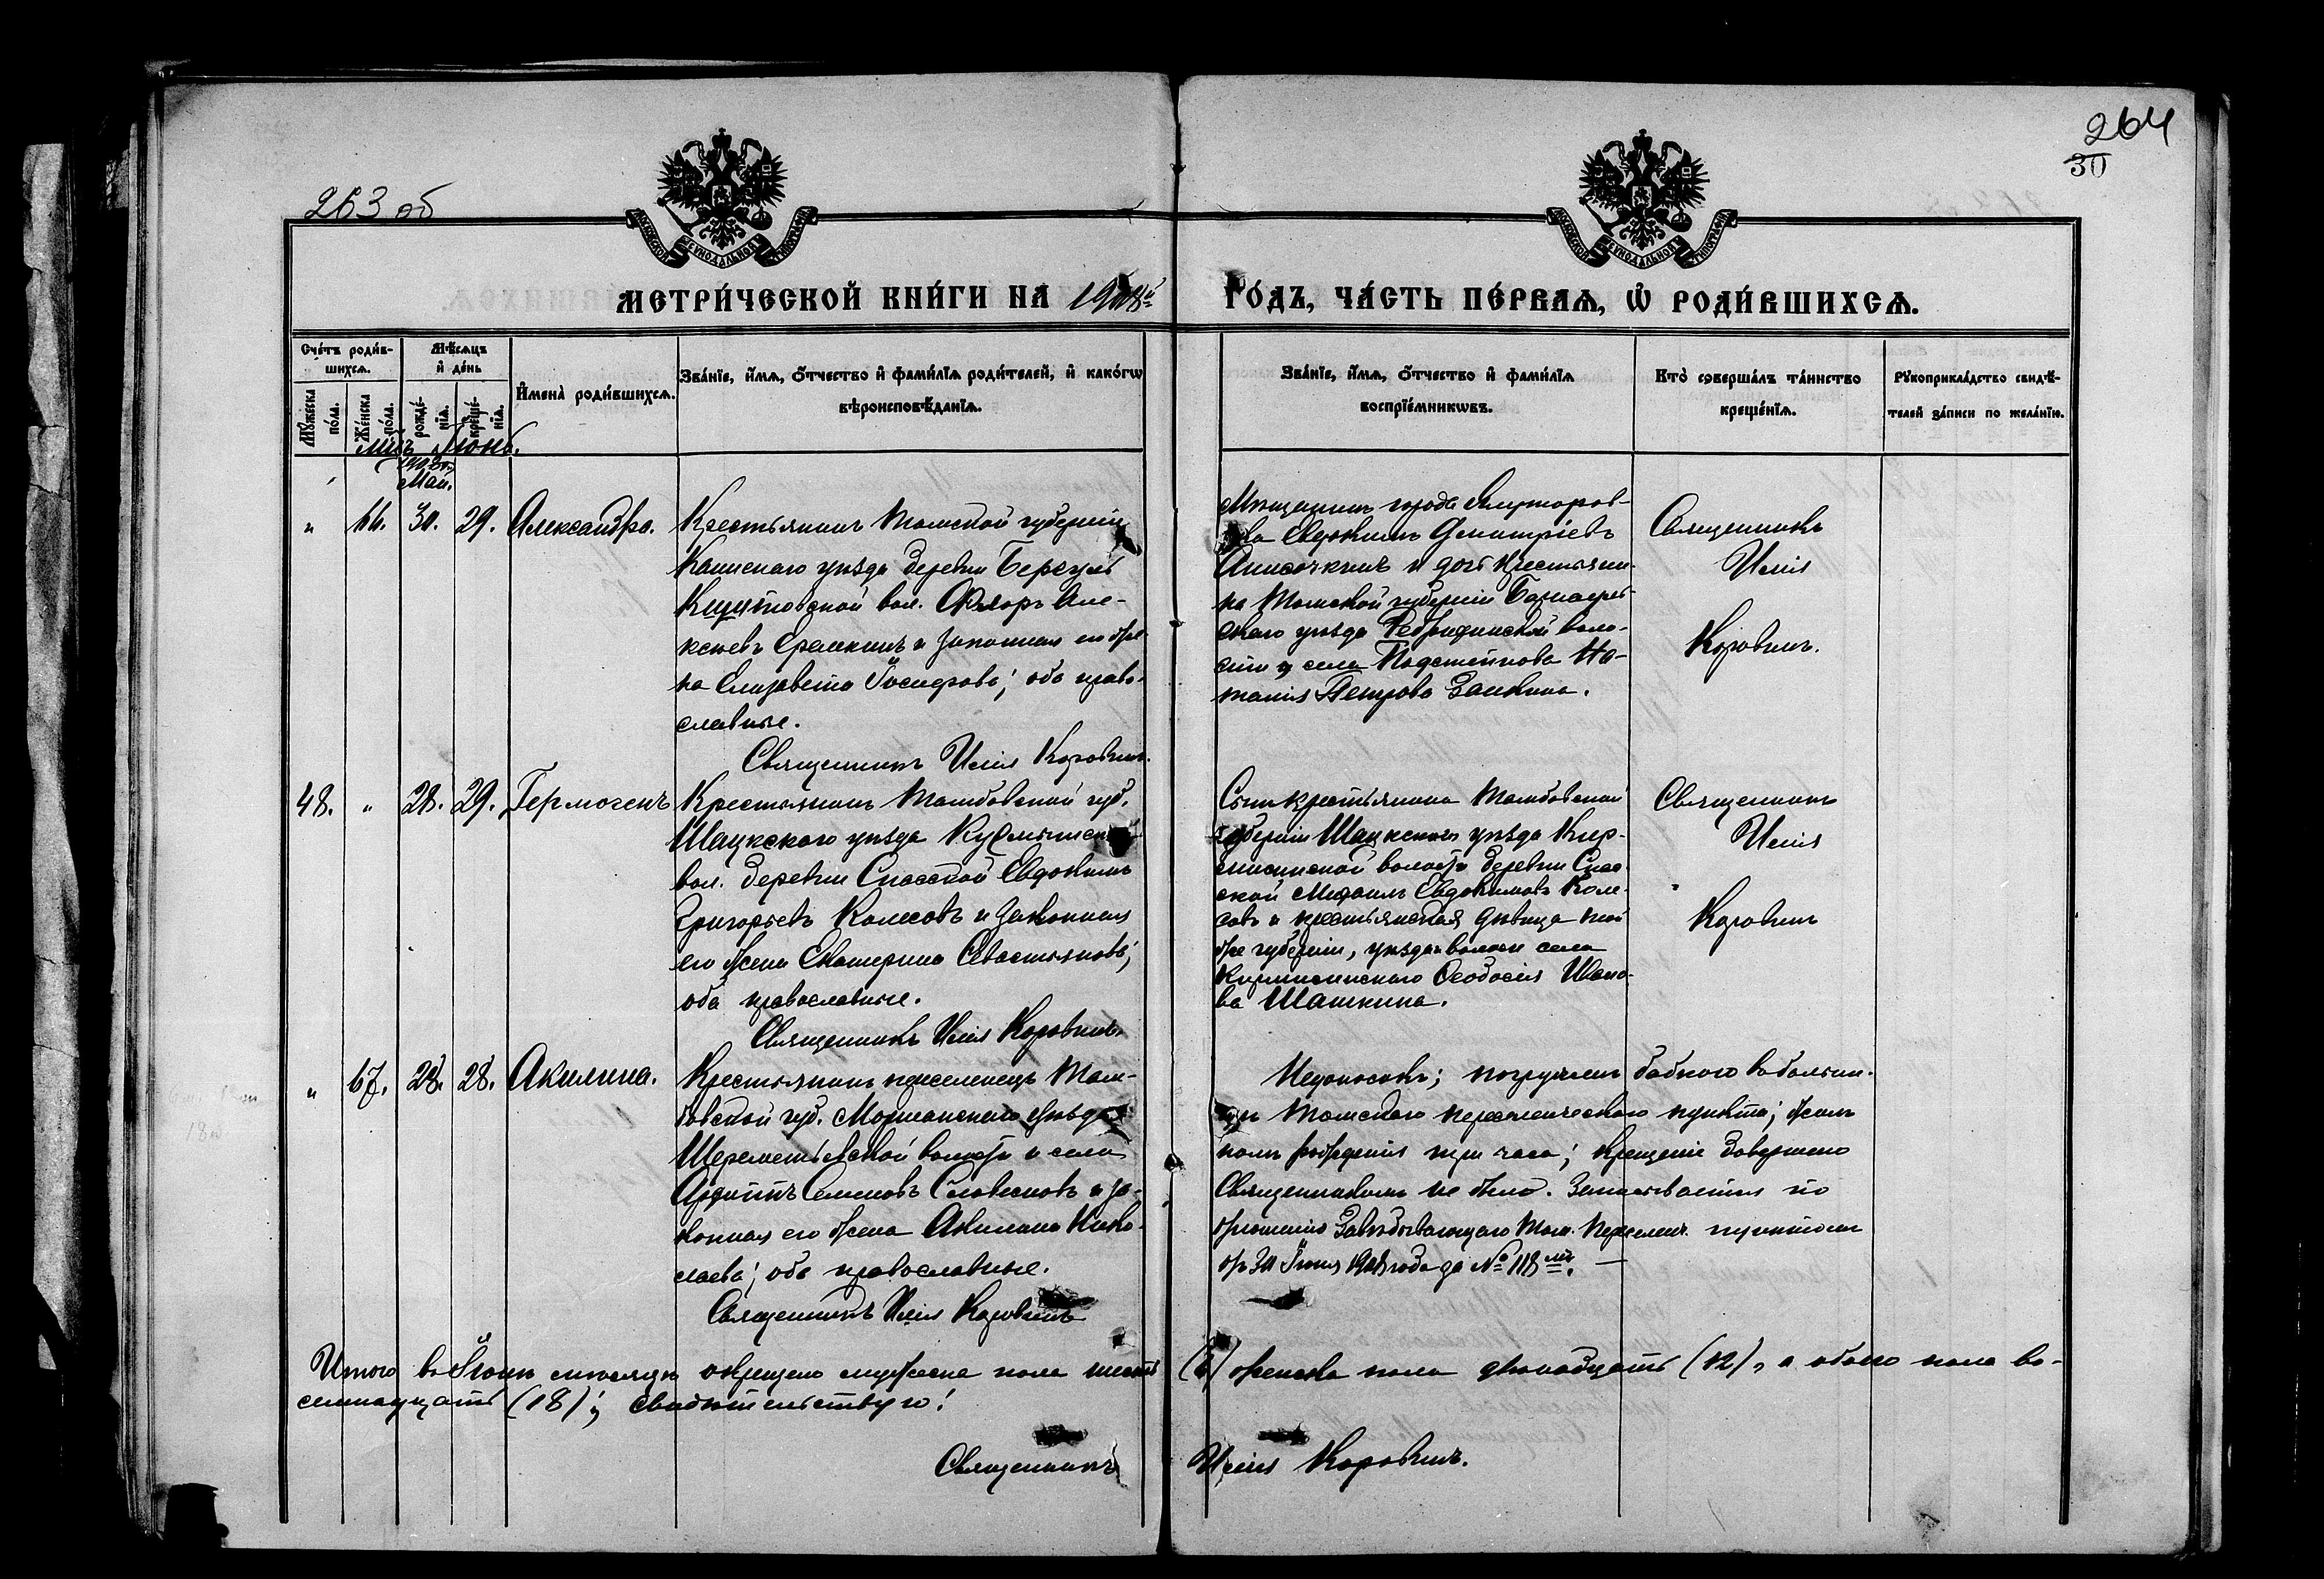 264
30
263 об
МЕТРИ́ЧЕСКОЙ КНИ́ГИ НА 1908й
ГО́ДЪ, ЧА́СТЬ ПЕ́РВАѦ, Ѡ҆ РОДИ́ВШИХСѦ.
Сче́тъ роди́в-
шихсѧ.
Мѣ́сѧцъ
и҆ де́нь
Мꙋ́жеска по́ла.
Же́нска по́ла.
рожде́-нїѧ.
креще́-нїѧ.
И҆мена̀ роди́вшихсѧ.
Зва́нїе, и҆́мѧ, ѻ҆́тчество и҆ фами́лїѧ роди́телей, и҆ како́гѡ
вѣроисповѣ́данїѧ.
Зва́нїе, и҆́мѧ, ѻ҆́тчество и҆ фами́лїѧ
воспрїе́мникѡвъ.
Кто̀ соверша́лъ та́инство
креще́нїѧ.
Рꙋкоприкла́дство свидѣ́-
телей за́писи по жела́нїю.
мцъ Іюнь.
1908 г.
Май.
" 66. 30. 29. Александра.
Крестьянинъ Томской губерніи
Каинскаго уѣзда деревни Бергуль
Кыштовской вол. Флоръ Але-
ксѣевъ Еремкинъ и законная его же-
на Елизавета Іосифова; оба право-
славные.
Священникъ Илія Коровинъ.
Мѣщанинъ города Ялуторов-
ска Евдокимъ Димитріевъ
Анисочкинъ и дочь крестьяни-
на Томской губерніи Барнауль-
скаго уѣзда Ребрихинской воло-
сти села Подстепнова На-
талія Петрова Заикина.
Священникъ
Илія
Коровинъ.
48. " 28. 29. Гермогенъ
Крестьянинъ Тамбовской губ.
Шацкского уѣзда
вол. деревни Спасской Евдокимъ
Григорьевъ Колесовъ и законная
его жена Екатерина Севастьянова;
оба православные.
Священникъ Илія Коровинъ.
Сынъ крестьянина Тамбовской
губерніи Шацкскаго уѣзда
волости деревни Спас-
ской Михаилъ Евдокимовъ Коле-
совъ и крестьянская дѣвица той
же губерніи, уѣзда и волости села
Ѳеодосія Ивано-
ва Шашкина.
Священникъ
Илія
Коровинъ
" 67. 28. 28. Акилина.
Крестьянинъ переселенецъ Там-
бовской губ. Моршанскаго уѣзда
Шереметьевской волости и села
Семеновъ Словесновъ и за-
конная его жена Акилина Нико-
лаева; оба православные.
Священникъ Илія Коровинъ
Недоносокъ; погружена бабкою въ больни-
цѣ Томскаго переселенческаго пункта; жила
послѣ рожденія три часа; крещеніе довершено
Священникомъ не было. Записывается по
отношенію Завѣдывающаго Том. Переселен. пунктомъ
отъ 30 Іюня 1908 года за № 118мъ. —
Итого въ Іюнѣ мѣсяцѣ окрещено мужеска пола шесть (6) женска пола двѣнадцать (12), а обоего пола во-
семнадцать (18); свидѣтельствую!
Священникъ Илія Коровинъ.